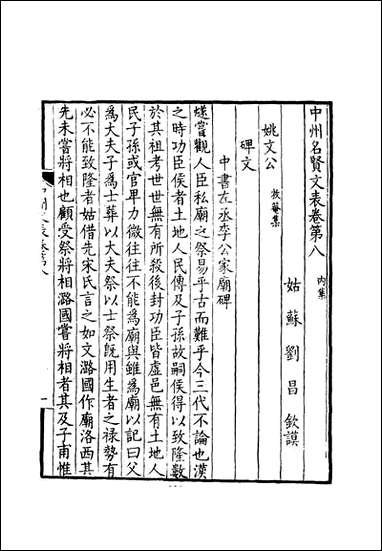 中州名賢文表卷第八 內集
姑蘇劉昌欽謨
姚文公 牧菴集
碑文
中書左丞李公家廟碑
燧嘗觀人臣私廟之祭易乎古而難乎今三代不論也漢
之時功臣侯者土地人民傳及子孫故嗣侯得以致隆數
於其祖考世世無有所殺後封功臣皆虛邑無有土地人
民子孫或官卑力微往往不能為廟與雖為廟以記曰父
為大夫子為士葬以大夫祭以士祭既用生者之祿勢有
必不能致隆者姑借先宋氏言之如文潞國作廟洛西其
先未嘗將相也顧受祭將相潞國嘗將相者其及子甫惟